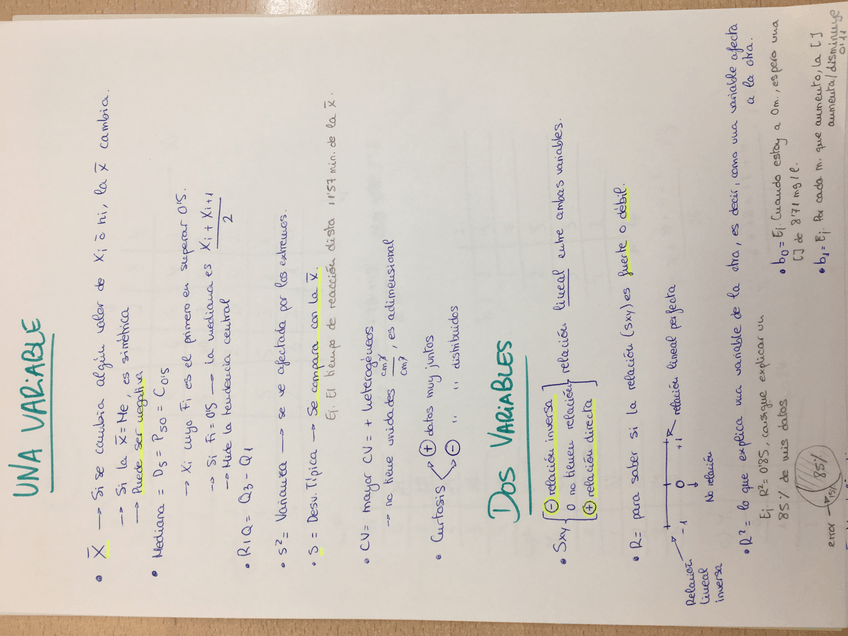 UNA VARIABLE
• X̄ → Si se cambia algún valor de Xi o ni, la X̄ cambia.
→ Si la X̄ = Me, es simétrica
→ Puede ser negativa
• Mediana = D5 = P50 = C0'5
→ Xi cuyo Fi es el primero en superar 0'5.
→ Si Fi = 0'5 → la mediana es (Xi + Xi+1) / 2
→ Mide la tendencia central
• RIQ = Q3 - Q1
• S² = Varianza → se ve afectada por los extremos.
• S = Desv. Típica → Se compara con la X̄.
Ej. El tiempo de reacción dista 11'57 min. de la X̄.
• CV = mayor CV = + heterogéneos
→ no tiene unidades cm/cm, es adimensional
• Curtosis ⊕ datos muy juntos
⊖ " " distribuidos
DOS VARIABLES
• Sxy ⊖ relación inversa
0 no tienen relación
⊕ relación directa
relación lineal entre ambas variables.
• R = para saber si la relación (Sxy) es fuerte o débil.
-1 0 +1
Relación lineal inversa
No relación
relación lineal perfecta
• R² = lo que explica una variable de la otra, es decir, como una variable afecta
a la otra.
Ej. R² = 0'85, consigue explicar un
85% de mis datos
error
15%
85%
• b0 = Ej. Cuando estoy a 0m, espero una
[ ] de 8'71 mg/l.
• b1 = Ej. Por cada m. que aumento, la [ ]
aumenta/disminuye
0'11